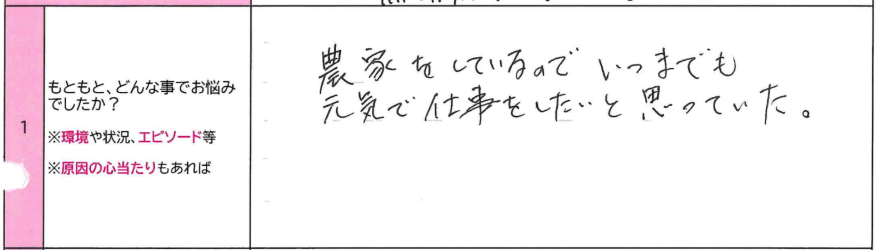 1
もともと、どんな事でお悩み
でしたか？
※環境や状況、エピソード等
※原因の心当たりもあれば
農家をしているので いつまでも
元気で仕事をしたいと思っていた。